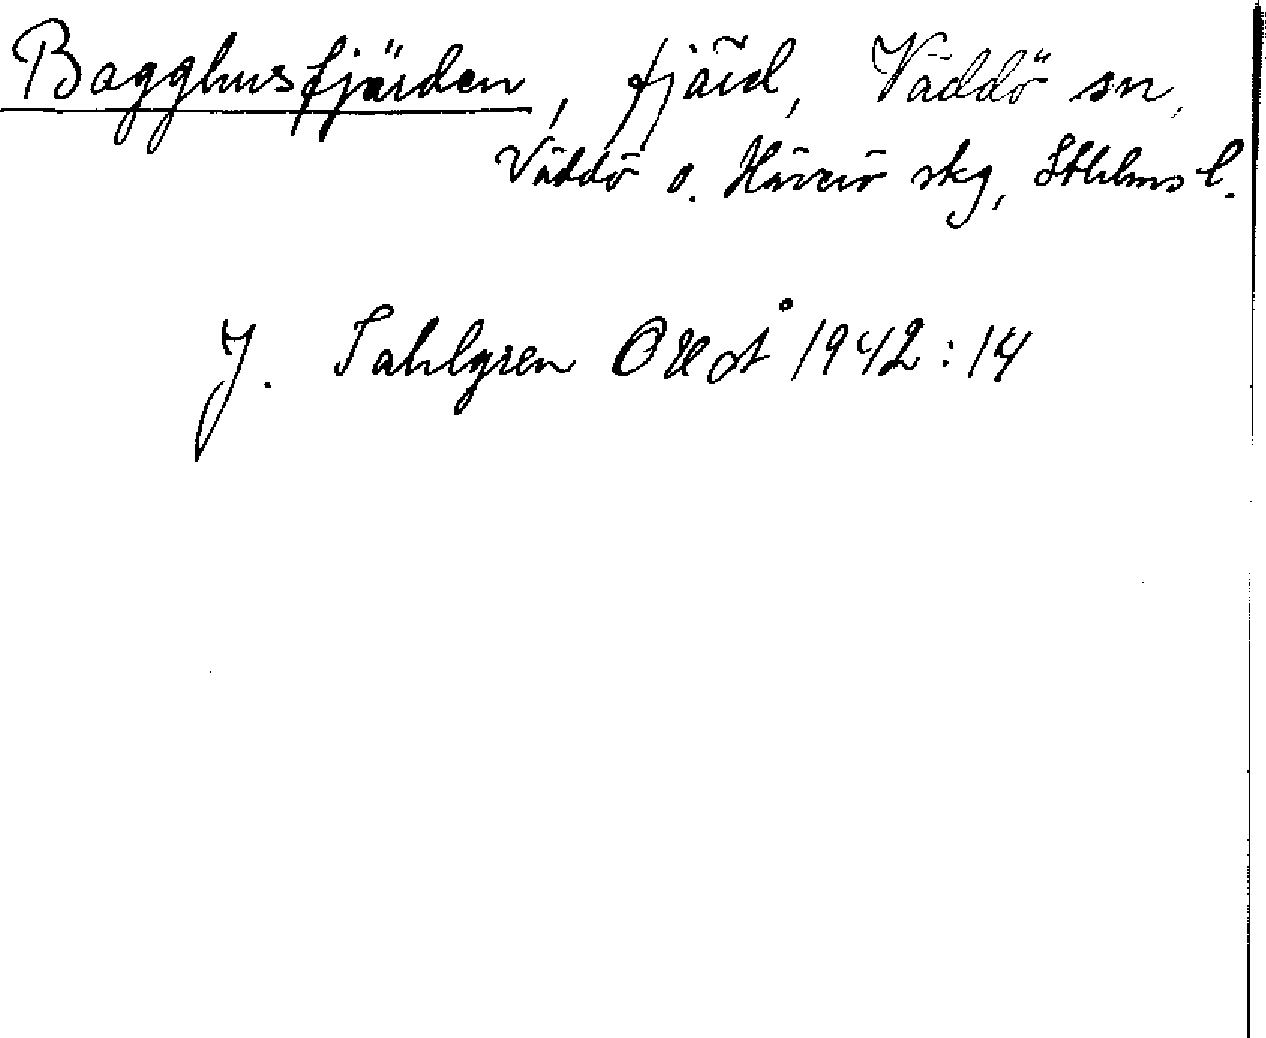 Bagghusfjärden, fjärd, Väddö sn,
Väddö o. Häverö skg, Sthlms l.
J. Sahlgren OUÅ 1942:14